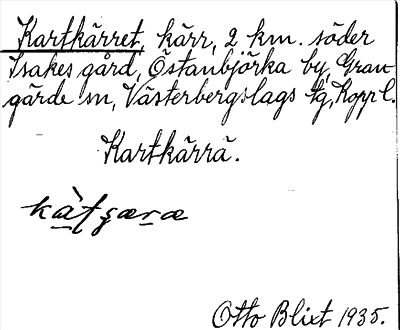 Kartkärret, kärr, 2 km. söder
Isakes gård, Östanbjörka by, Gran-
gärde sn, Västerbergslags tg, Koppl.
Kartkärrä.
Otto Blixt 1935.